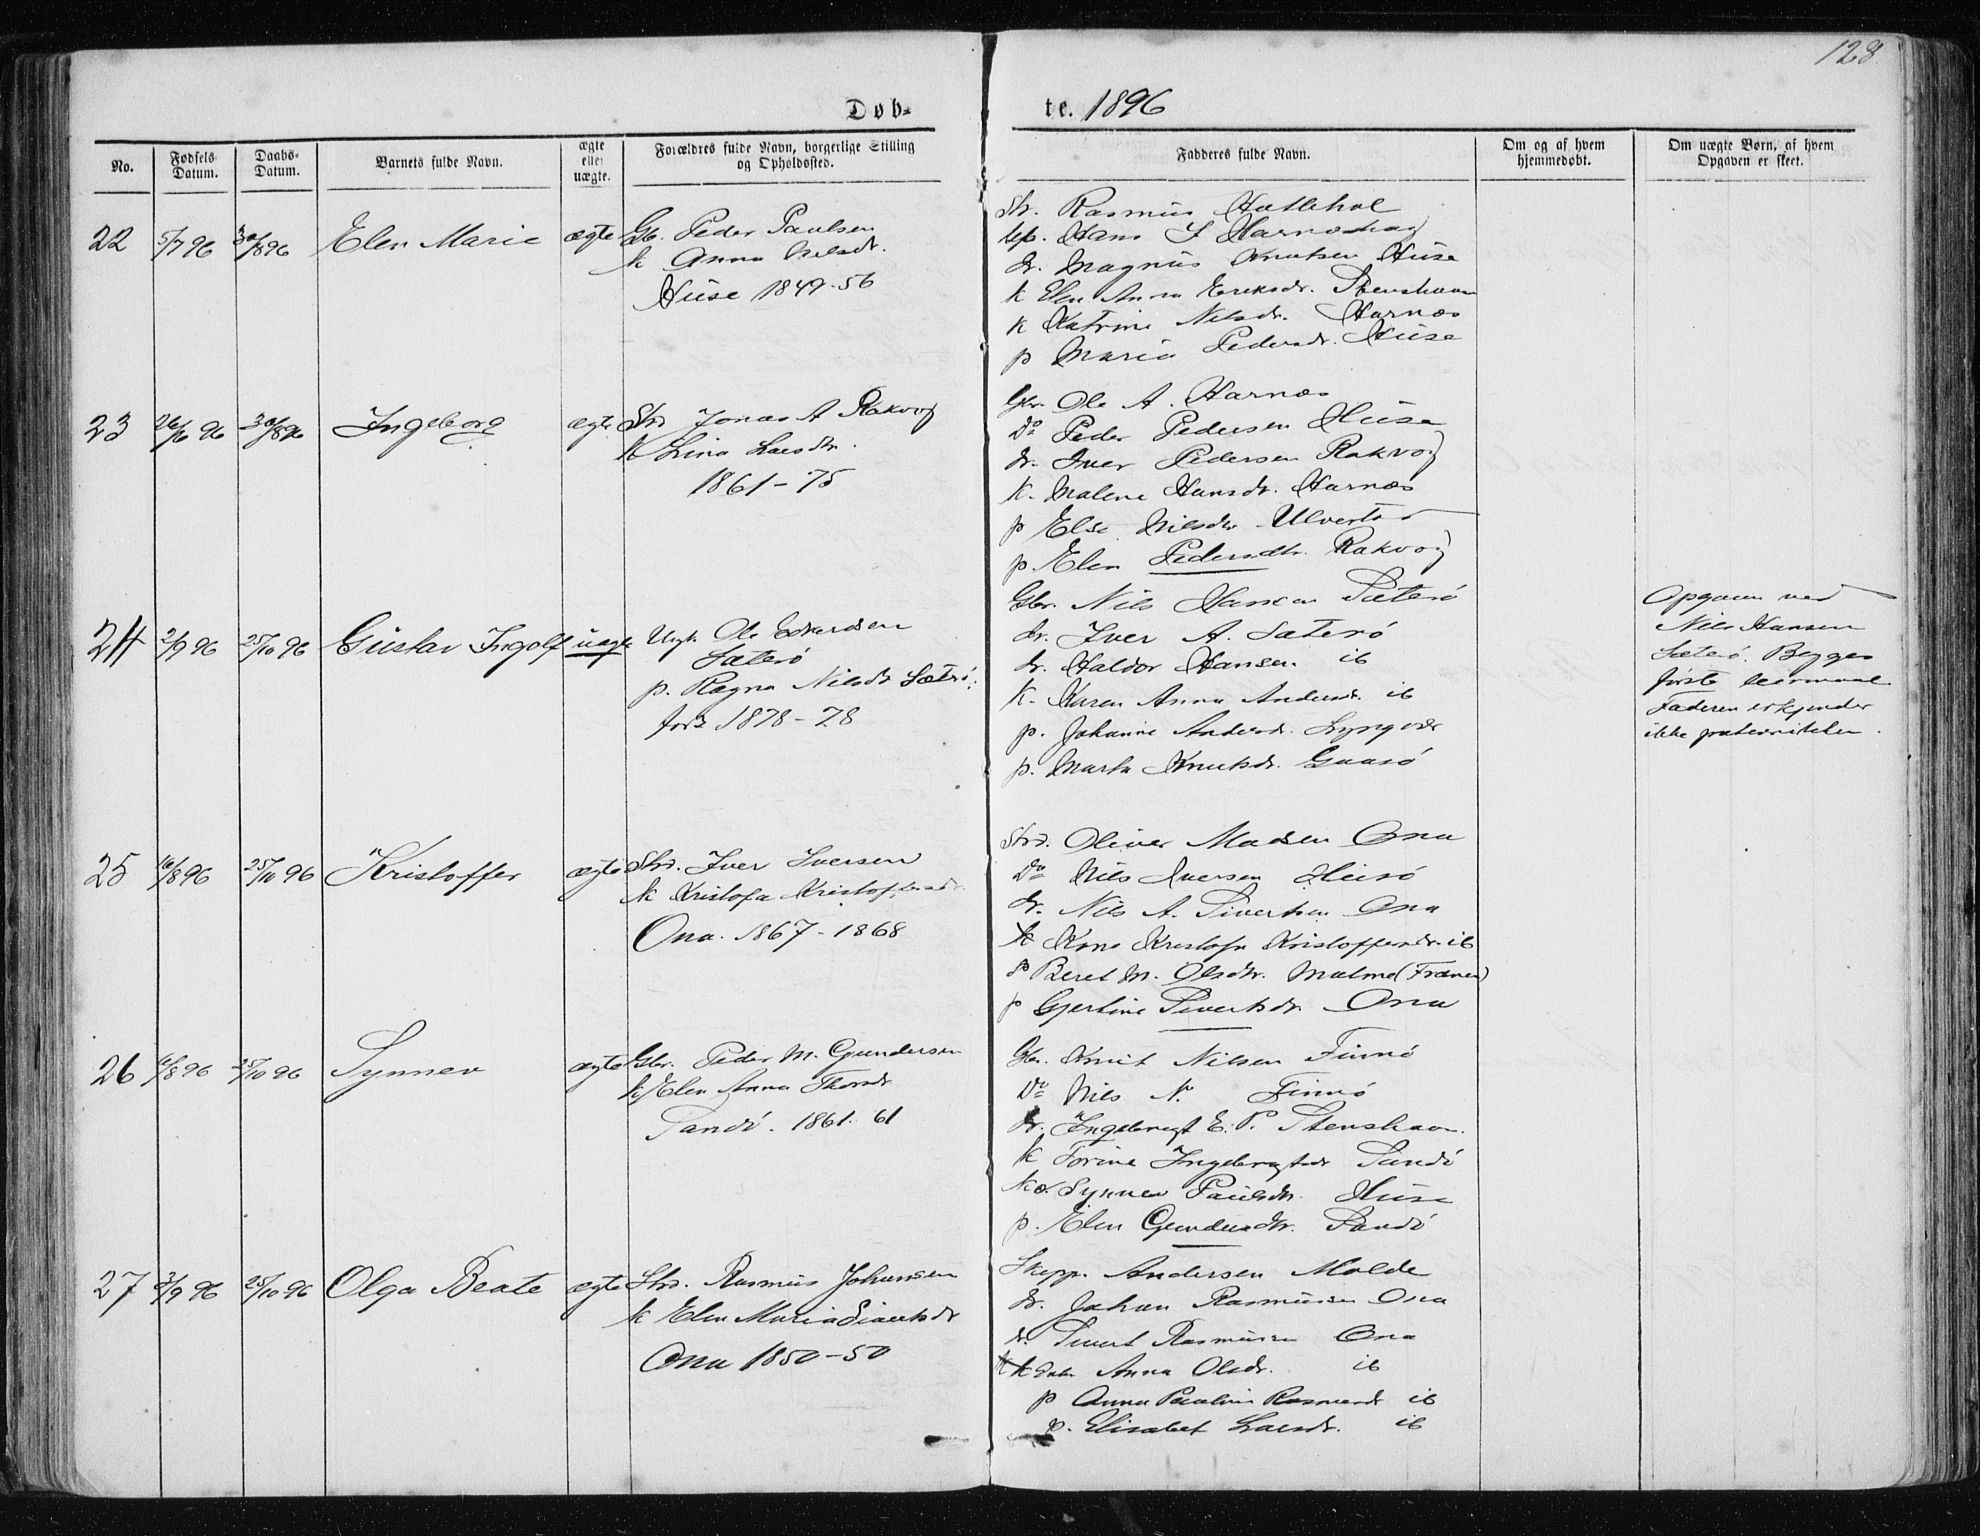 128
Døb-
te. 1896
No.
Fødsels-
Datum.
Daabs-
Datum.
Barnets fulde Navn.
ægte
eller
uægte.
Forældres fulde Navn, borgerlige Stilling
og Opholdssted.
Fadderes fulde Navn.
Om og af hvem
hjemmedøbt.
Om uægte Børn, af hvem
Opgaven er skeet.
22 5/7 96 30/8 96 Elen Marie ægte Gbr. Peder Paulsen
k Anna Nelsdr.
Huse 1849-56
Rasmus
Hans
dr. Magnus Knutsen Huse
k Elen Anna Eriksdr. Stenshavn
k Katrine Nilsdr. Harnæs
p Maria Pedersdr. Huse
23 30/8 96 Ingeborg ægte Strd Jonas A Rakvog
k Lina Larsdtr.
1861-75
Gbr. Ole A. Harnæs
Do Peder Pedersen Huse
dr. Iver Pedersen Rakvog
k. Malene Hansdr. Harnæs
p Else Nilsdtr
p. Elen Pedersdtr. Rakvog
24 2/9 96 25/10 96 Gustav Ingolf uægte Ungk. Ole
Sæterø
p. Ragna Nilsdr Sæterø
1878-78
Gbr. Nils Hansen Sæterø
dr. Iver A. Sæterø
dr. Haldor Hansen ib
k. Karen Anna Andersdr. ib
p. Johanne Andersdr. Lyngvær
p. Marta Knutsdr. Gaasø
Opgaven ved
Nils Hansen
Sæterø. Begges
første leiermaal
Faderen erkjender
ikke paterniteten.
25 16/8 96 25/10 96 Kristoffer ægte Strd. Iver Iversen
k Kristofa Kristoffersdr.
Ona. 1867-1868
Strd. Oliver Madsen Ona
Do Nils Iversen Husø
dr. Nils A. Sivertsen Ona
k Kristofa Kristoffersdr. ib
p Beret M. Olsdtr. Malme (Frænen)
p Gjertine Sivertsdr. Ona
26 6/8 96 25/10 96 Synnev ægte Gbr. Peder M. Gundersen
k Elen Anna Thorsdr
Sandø. 1861. 61
Gbr. Knut Nilsen Finnø
Do Nils N. Finnø
dr. Ingebrigt E. P. Stenshavn.
k Torine Ingebrigtsdr Sandø
Synnev Paulsdtr. Huse
p. Elen Gundersdtr. Sandø
27 3/9 96 25/10 96 Olga Beate ægte Strd. Rasmus Johansen
k Elen Maria Sivertsdr
Ona 1850-50
Skipp. Andersen Molde
dr. Johan Rasmussen Ona
dr. Sivert Rasmussen Ona
k Anna Olsdr. ib
p Anna Pauline Rasmusdr ib
p. Elisabet Larsdr. ib